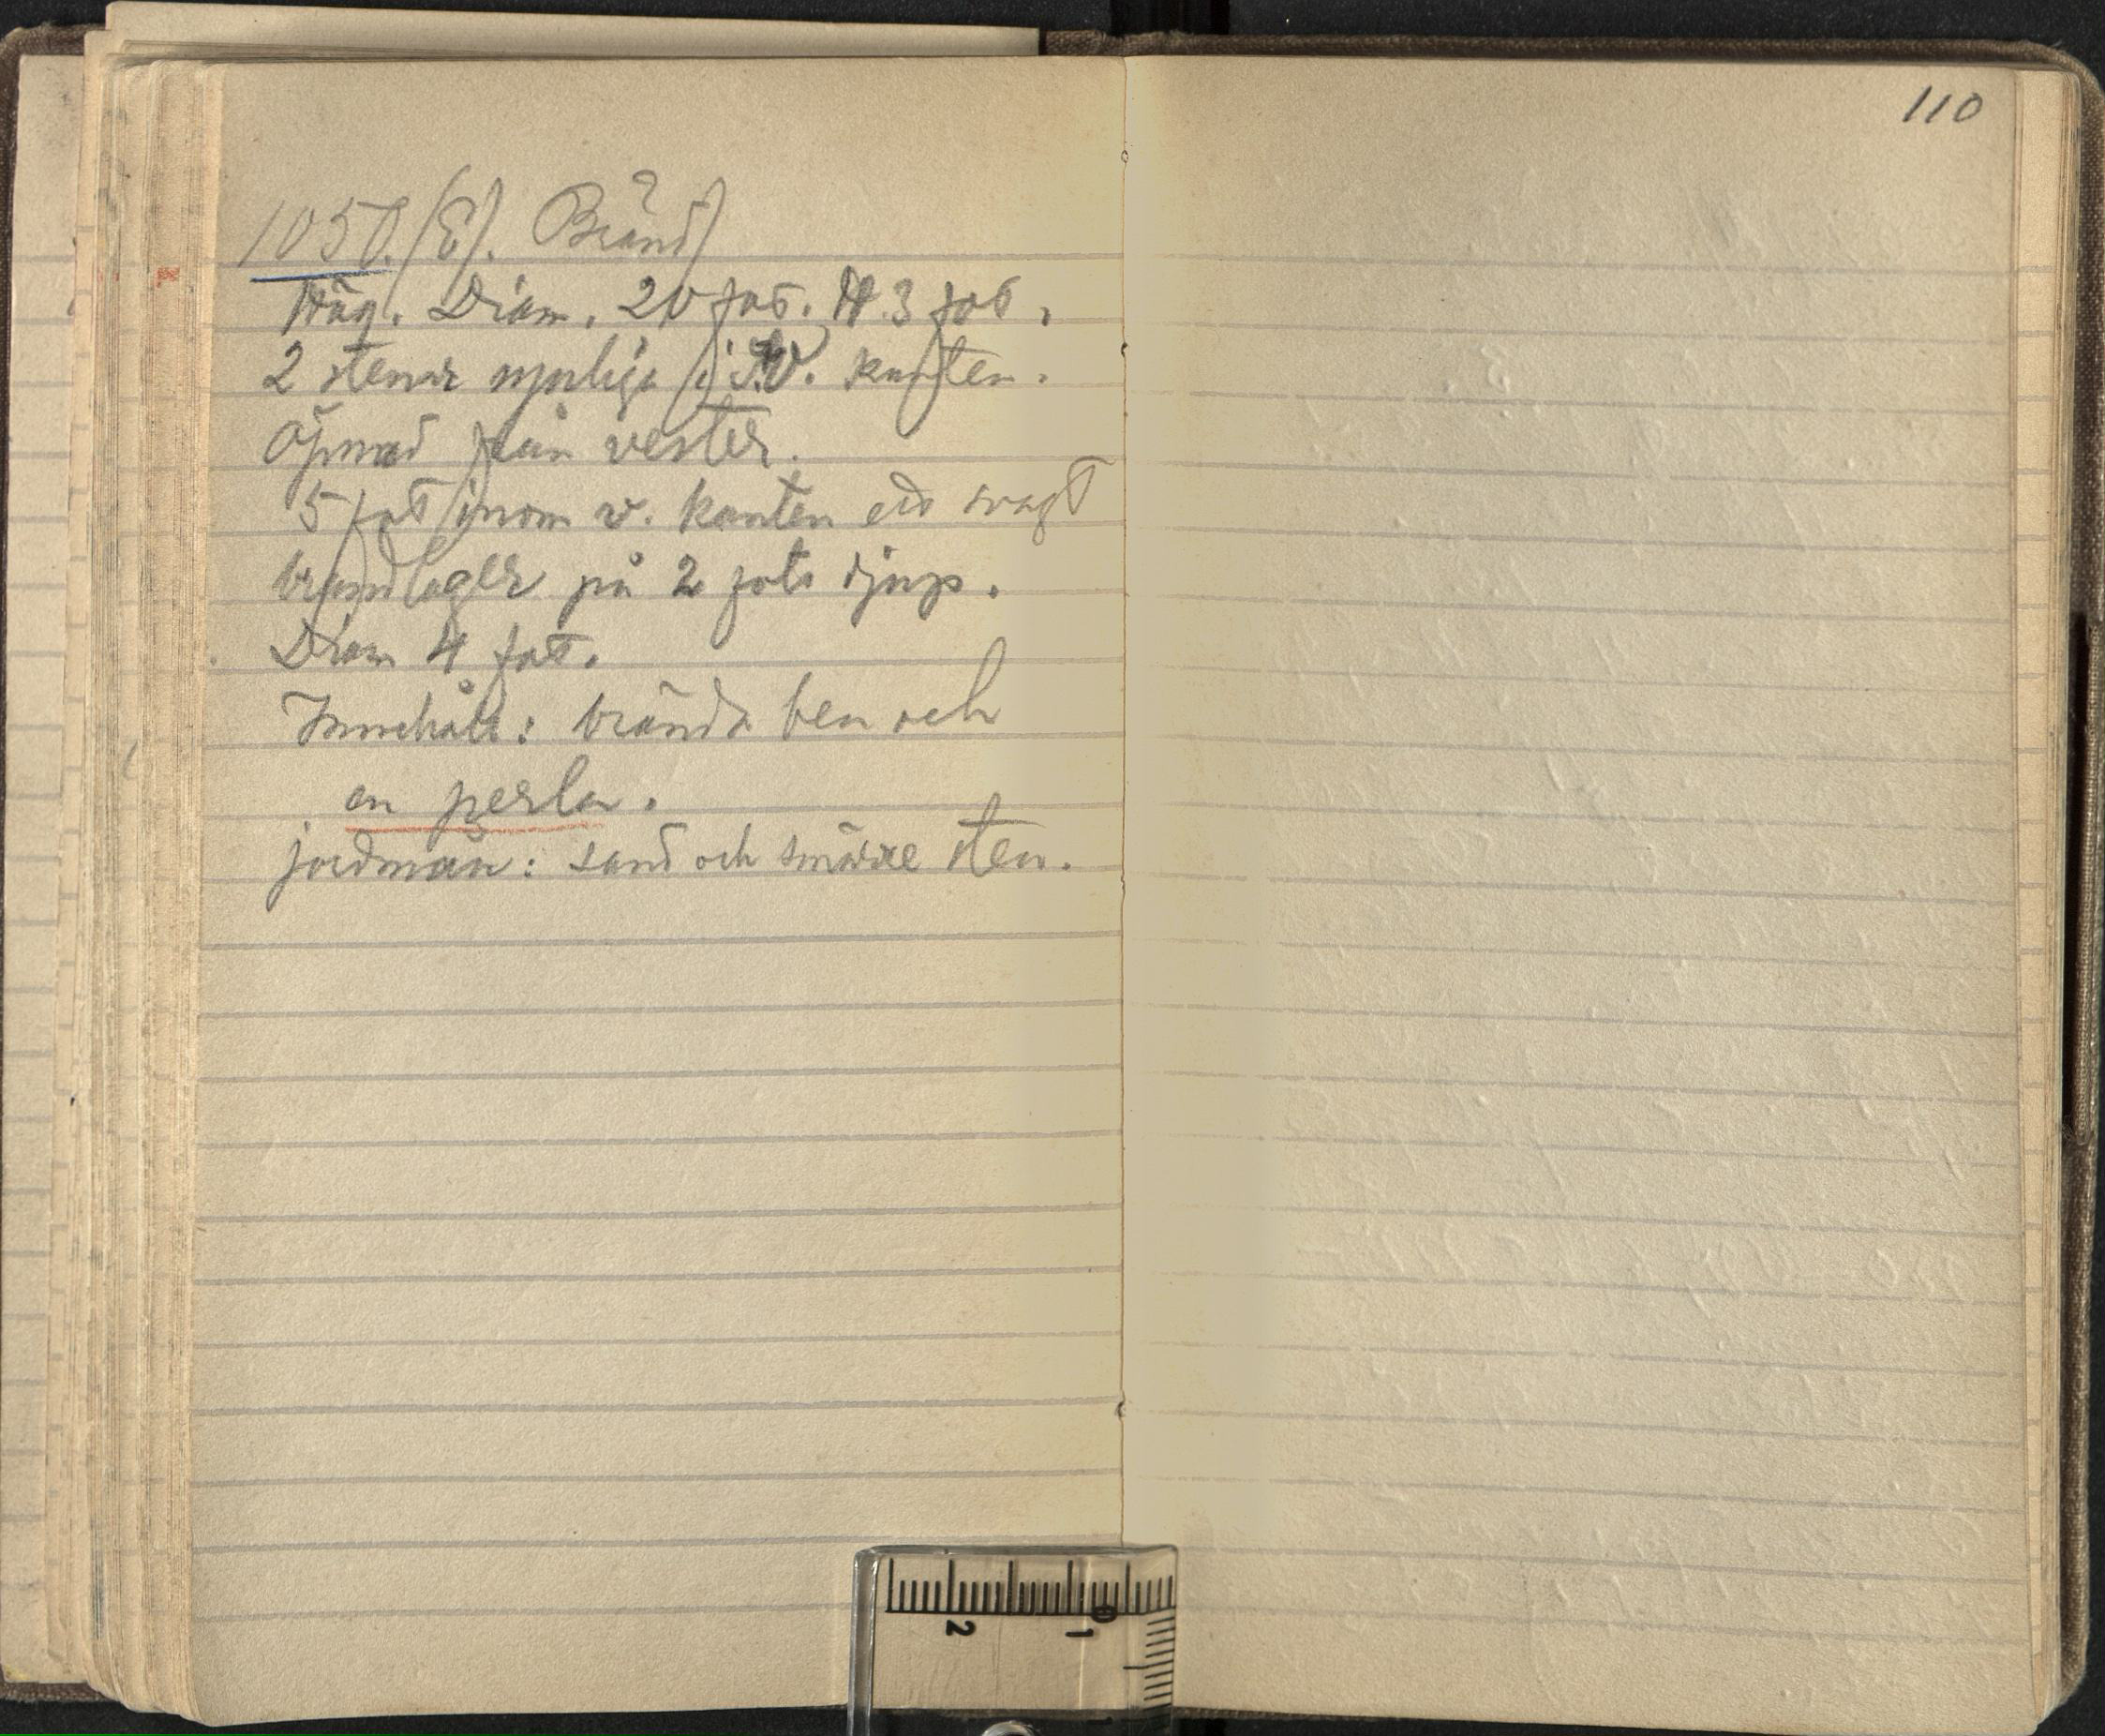 110
1050. (E). Bränd
Hög. Diam. 20 fot. H. 3 fot.
2 stenar synliga i S.V. kanten.
Öpnad från vester.
5 fot inom v. kanten ett svagt
brandlager på 2 fots djup.
Diam 4 fot.
Innehåll: brända ben och
en perla.
jordmån: sand och smärre sten.
2
1
0